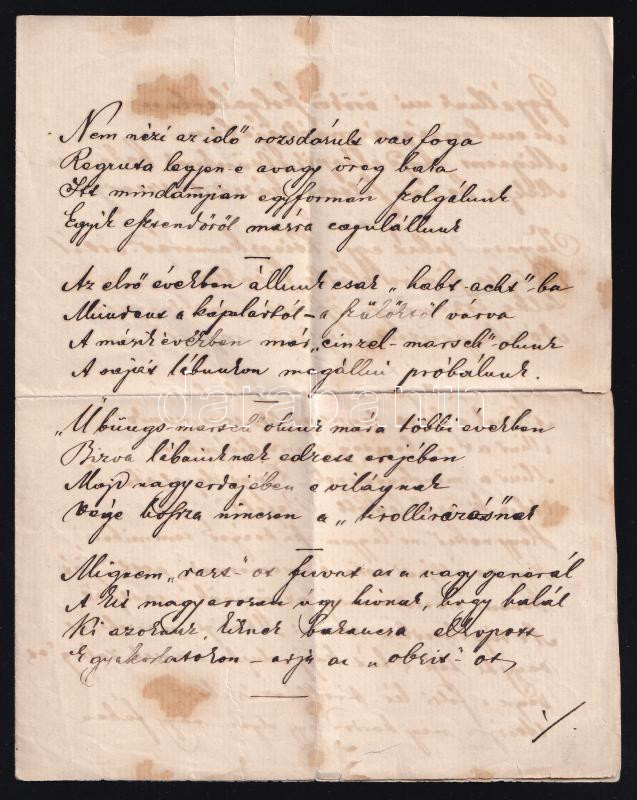 Nem nézi az idő rozsdásult vas foga
Regruta legyen-e avagy öreg baka
Itt mindannyian egyformán szolgálunk
Egyik esztendőről másra vagulállunk

Az első években állunk csak „habt-acht"-ba
Mindent a káplártól – a szülőktől várva
A másik években már „einzel-marsch"-olunk
A saját lábunkon megállni próbálunk.

„Übungs-marsch" olunk már a többi években
Bizva lábainknak edzess erejében
Majd nagy erdejében a világnak
Vége hossza nincsen a „tirollirozásnak

Mignem „raszt"-ot fuvat az a nagy generál
A kit magyarosan úgy hivnak, hogy halál
Ki azoknak, kiknek bakancsa elkopott
E gyakorlatokon – adja az „obzit"-ot,

1/.

darabanth